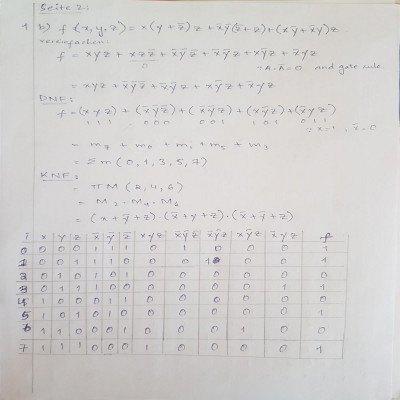 Seite 2:
1 b) f(x, y, z) = x(y + z̄)z + x̄ȳ(z̄ + z) + (xȳ + x̄y)z.
vereinfachen:
f = xyz + xz̄z + x̄ȳz̄ + x̄ȳz + xȳz + x̄yz
0 ∵ A.Ā = 0 and gate rule
= xyz + x̄ȳz̄ + x̄ȳz + xȳz + x̄yz
DNF:
f = (xyz) + (x̄ȳz̄) + (x̄ȳz) + (xȳz) + (x̄yz)
1 1 1 0 0 0 0 0 1 1 0 1 0 1 1
∵ x=1, x̄=0
= m7 + m0 + m1 + m5 + m3
= Σm(0, 1, 3, 5, 7)
KNF:
= πM(2, 4, 6)
= M2 · M4 · M6
= (x + ȳ + z) · (x̄ + y + z) · (x̄ + ȳ + z)
i x y z x̄ ȳ z̄ xyz x̄ȳz̄ x̄ȳz xȳz x̄yz f
0 0 0 0 1 1 1 0 1 0 0 0 1
1 0 0 1 1 1 0 0 0 1 0 0 1
2 0 1 0 1 0 1 0 0 0 0 0 0
3 0 1 1 1 0 0 0 0 0 0 1 1
4 1 0 0 0 1 1 0 0 0 0 0 0
5 1 0 1 0 1 0 0 0 0 1
6 1 1 0 0 0 1 0 0 0 1 0 0
7 1 1 1 0 0 0 1 0 0 0 0 1